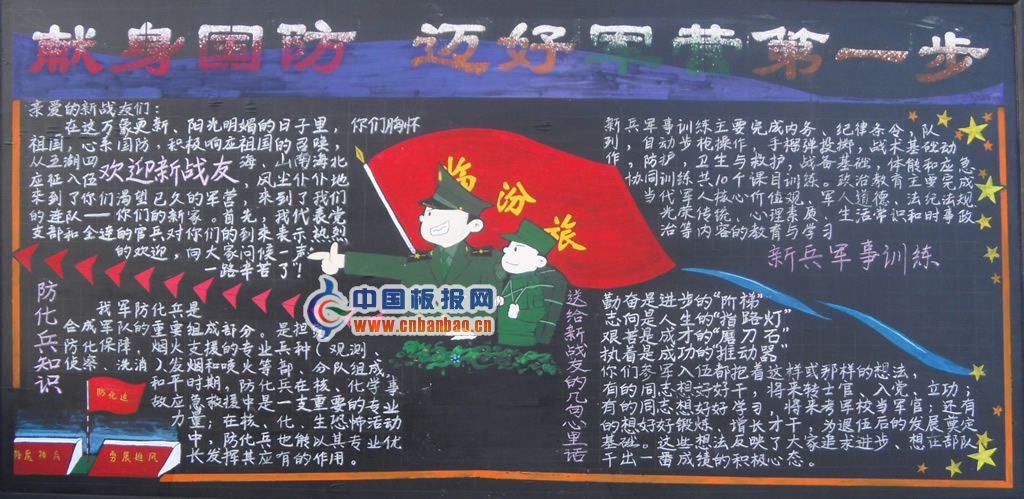 献身国防 迈好军营第一步
亲爱的新战友们：
在这万象更新、阳光明媚的日子里，你们胸怀
祖国，心系国防，积极响应祖国的召唤，
从五湖四海、山南海北
应征入伍，风尘仆仆地
欢迎新战友
来到了你们渴望已久的军营，来到了我们
的连队——你们的新家。首先，我代表党
支部和全连的官兵对你们的到来表示热烈
的欢迎，向大家问候一声
一路辛苦了！
防化兵知识
我军防化兵是
合成军队的重要组成部分。是担
防化保障、烟火支援的专业兵种（观测、
侦察、洗消）、发烟和喷火等部、分队组成，
和平时期，防化兵在核、化学事
故应急救援中是一支重要的专业
力量；在核、化、生、恐
中，防化兵也能以其专业优
长发挥其应有的作用。
防化连
务展雄风
临汾旅
中国板报网
www.cnbanbao.cn
新兵军事训练主要完成内务、纪律条令，队
列，自动步枪操作与手榴弹投掷，战术基础动
作，防护，卫生与救护，战备基础，体能和应急
协同训练共10个课目训练。政治教育主要完成
当代军人核心价值观、军人道德、法纪法规
光荣传统、心理素质、生活常识和时事政
治等内容的教育与学习
新兵军事训练
送给新战友的几句心里话
勤奋是进步的“阶梯”
志向是人生的“指路灯”
艰苦是成才的“磨刀石”
执着是成功的“推动器”
你们参军入伍都抱着这样或那样的想法，
有的同志想好好干，将来转士官、入党、立功；
有的同志想好好学习，将来考军校当军官；还有
的想好好锻炼，增长才干，为退伍后的发展奠定
基础。这些想法反映了大家追求进步、想在部队
干出一番成绩的积极心态。